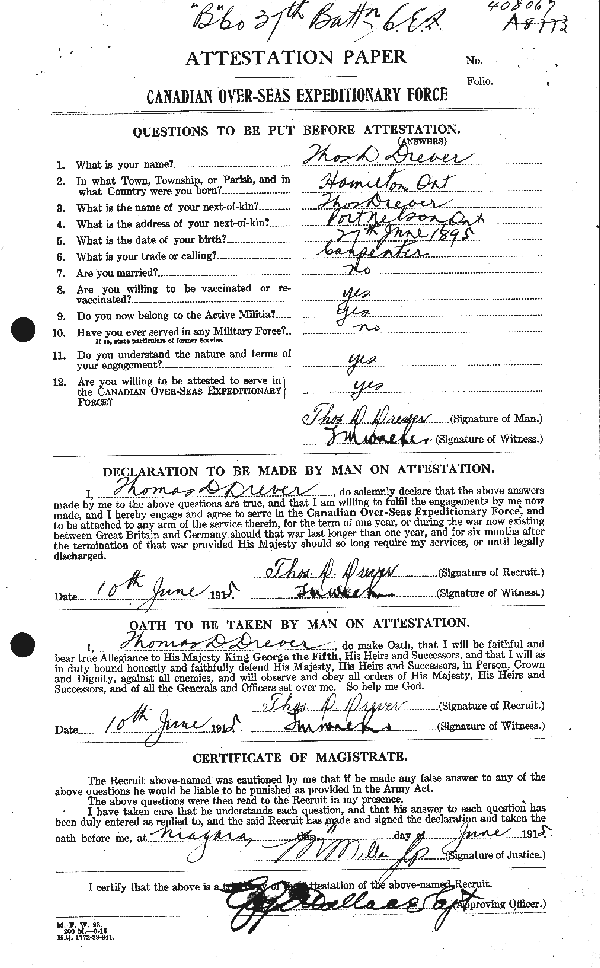 "B" Co 37th Battn C.E.F.
408067
A8772
ATTESTATION PAPER
No.
Folio.
CANADIAN OVER-SEAS EXPEDITIONARY FORCE
QUESTIONS TO BE PUT BEFORE ATTESTATION.
(ANSWERS)
1. What is your name? Thos D Drever
2. In what Town, Township, or Parish, and in
what Country were you born? Hamilton Ont
3. What is the name of your next-of-kin? Thos Drever
4. What is the address of your next-of-kin? Port Nelson Ont
5. What is the date of your birth? 27th June 1895
6. What is your trade or calling? Carpenter
7. Are you married? no
8. Are you willing to be vaccinated or re-
vaccinated? yes
9. Do you now belong to the Active Militia? Yes
10. Have you ever served in any Military Force? no
If so, state particulars of former Service.
11. Do you understand the nature and terms of
your engagement? yes
12. Are you willing to be attested to serve in
the CANADIAN OVER-SEAS EXPEDITIONARY yes
FORCE?
Thos D Drever (Signature of Man.)
(Signature of Witness.)
DECLARATION TO BE MADE BY MAN ON ATTESTATION.
I, Thomas D Drever, do solemnly declare that the above answers
made by me to the above questions are true, and that I am willing to fulfil the engagements by me now
made, and I hereby engage and agree to serve in the Canadian Over-Seas Expeditionary Force, and
to be attached to any arm of the service therein, for the term of one year, or during the war now existing
between Great Britain and Germany should that war last longer than one year, and for six months after
the termination of that war provided His Majesty should so long require my services, or until legally
discharged.
Thos D Drever (Signature of Recruit.)
Date 10th June 1915 (Signature of Witness.)
OATH TO BE TAKEN BY MAN ON ATTESTATION.
I, Thomas D Drever, do make Oath, that I will be faithful and
bear true Allegiance to His Majesty King George the Fifth, His Heirs and Successors, and that I will as
in duty bound honestly and faithfully defend His Majesty, His Heirs and Successors, in Person, Crown
and Dignity, against all enemies, and will observe and obey all orders of His Majesty, His Heirs and
Successors, and of all the Generals and Officers set over me. So help me God.
Thos D Drever (Signature of Recruit.)
Date 10th June 1915 (Signature of Witness.)
CERTIFICATE OF MAGISTRATE.
The Recruit above-named was cautioned by me that if he made any false answer to any of the
above questions he would be liable to be punished as provided in the Army Act.
The above questions were then read to the Recruit in my presence.
I have taken care that he understands each question, and that his answer to each question has
been duly entered as replied to, and the said Recruit has made and signed the declaration and taken the
oath before me, at Niagara, this day of June 1915
(Signature of Justice.)
I certify that the above is a true copy of the Attestation of the above-named Recruit.
Wallace Capt (Approving Officer.)
M. F. W. 23.
200 M.—6-15
H.Q. 1772-39-841.